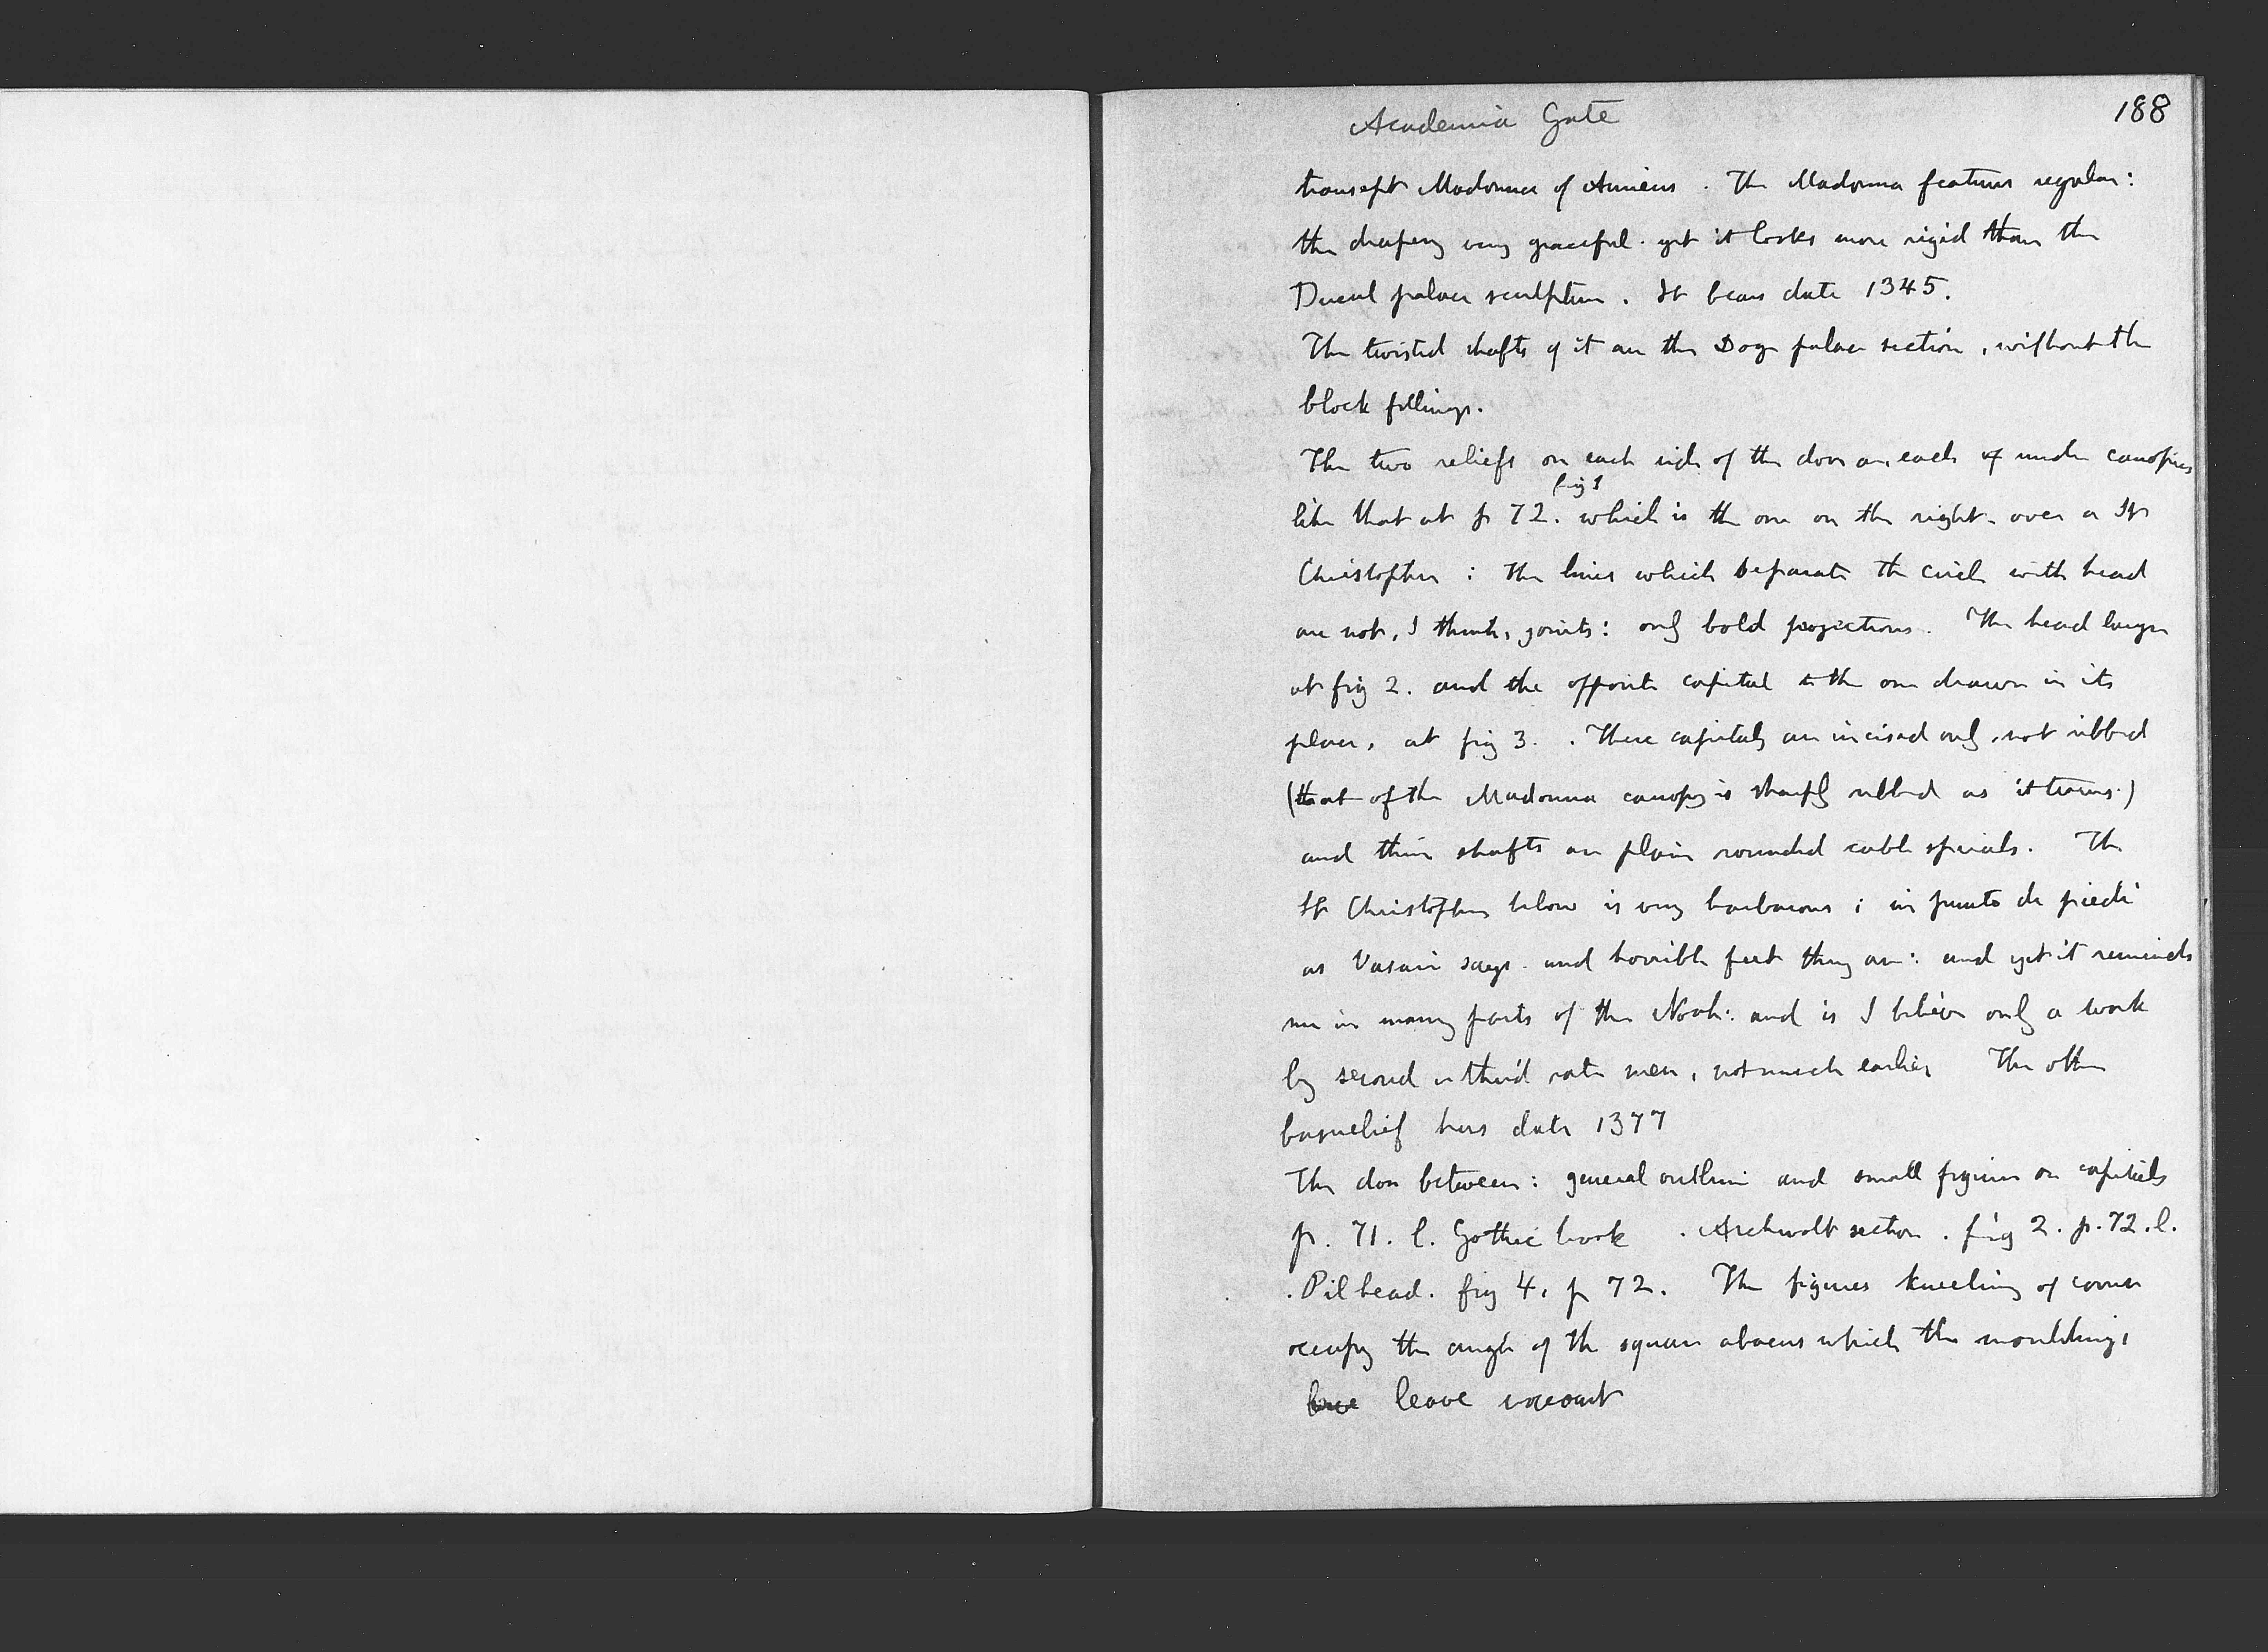 Academia Gate
188
transept Madonna of Amiens. The Madonna features regular:
the drapery very graceful. yet it looks more rigid than the
Ducal palace sculpture. It bears date 1345.
The twisted shafts of it are the Doge palace section, without the
block fillings.
The two reliefs on each side of the door are, each of under canopies
fig 1
like that at p 72. which is the one on the right. over a St
Christopher: the lines which separate the circle with head
are not, I think, joints: only bold projections. The head larger
at fig 2. and the opposite capital to the one drawn in its
place, at fig 3. . These capitals are incised only, not ribbed
(that of the Madonna canopy is sharply ribbed as it turns.)
and their shafts are plain rounded cable spirals. The
St Christopher below is very barbarous; in punto de piedi
as Vasari says. and horrible feet they are: and yet it reminds
me in many parts of the Noah: and is I believe only a work
by second or third rate men, not much earlier The other
basrelief has date 1377
The door between: general outline and small figures on capitals
p. 71. l. Gothic book . Archivolt section. fig 2. p. 72. l.
. Pil head. fig 4. p 72. The figures kneeling of course
occupy the angle of the square abacus which the mouldings
leave vacant